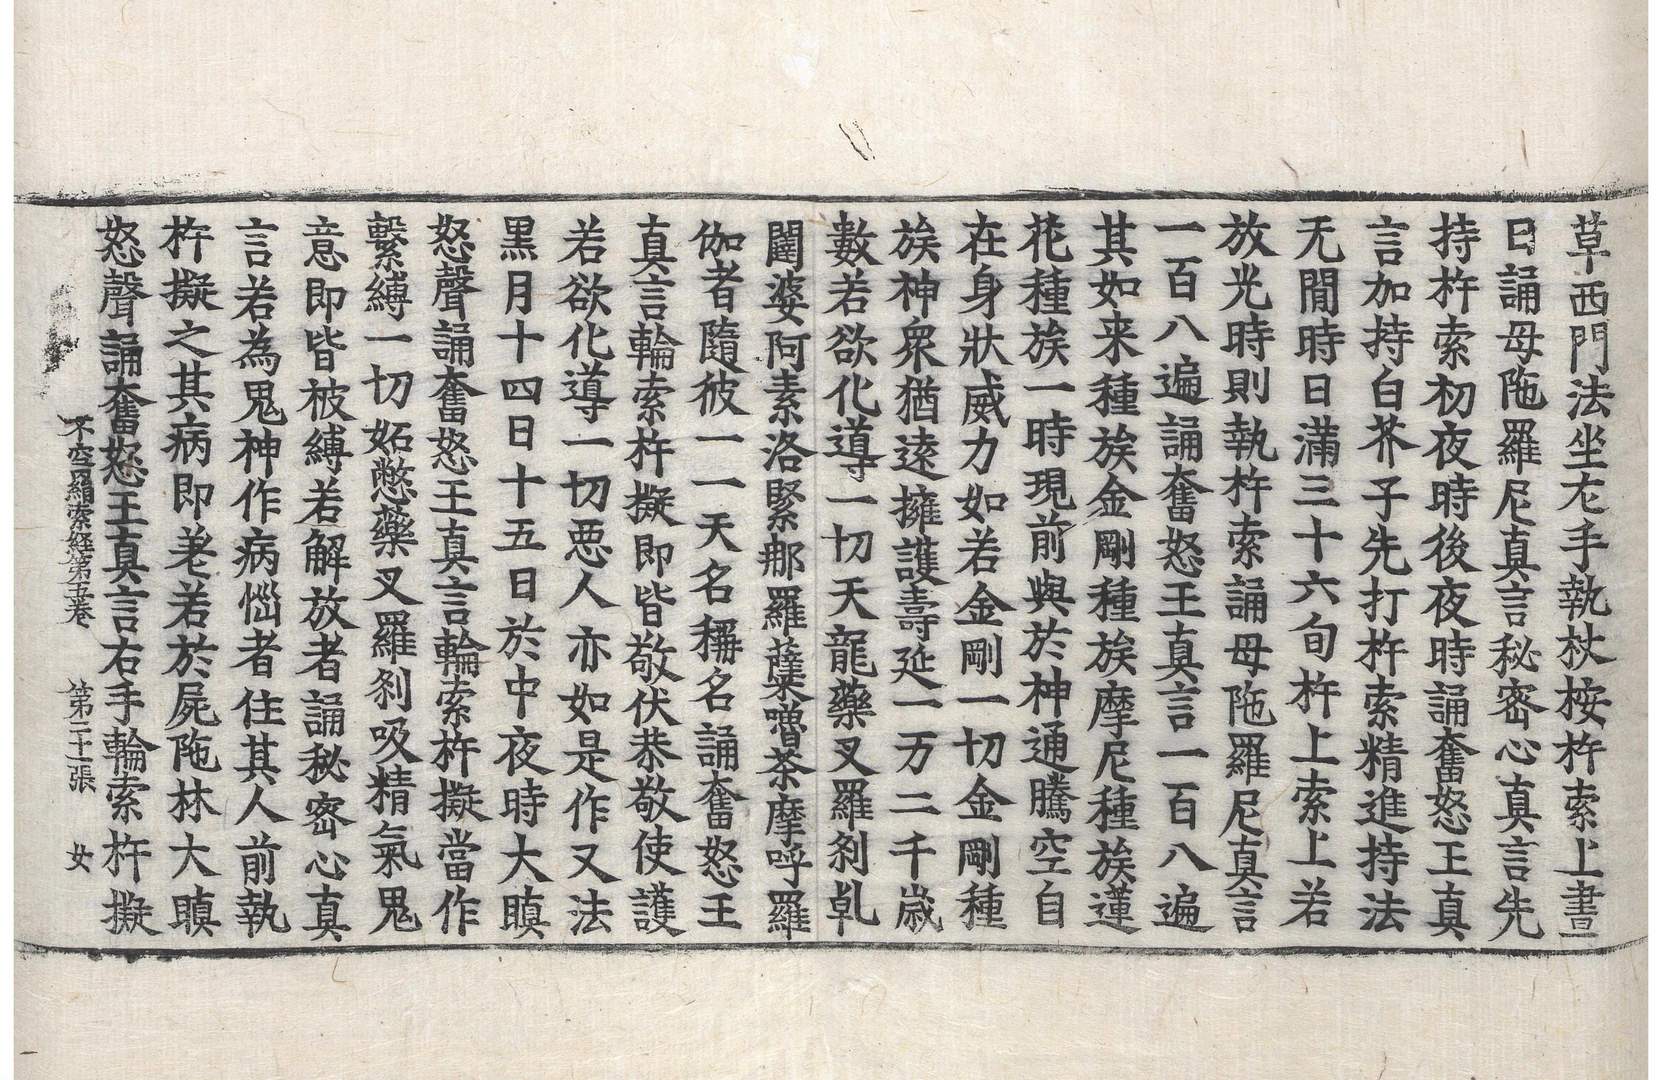 草西門法坐左手執杖桉杵索上晝三
日誦母陁羅尼真言秘密心真言先
持杵索初夜時後夜時誦奮怒王真
言加持白芥子先打杵索精進持法
无閒時日滿三十六旬杵上索上若
放光時則執杵索誦母陁羅尼真言
一百八遍誦奮怒王真言一百八遍
其如来種族金剛種族摩尼種族蓮
花種族一時現前與於神通騰空自
在身狀威力如若金剛一切金剛種
族神衆猶逺擁護壽延一万二千歲
數若欲化導一切天龍藥叉羅剎乹
闥婆阿素洛緊那羅蘖嚕荼摩呼羅
伽者隨彼一一天名稱名誦奮怒王
真言輪索杵擬即皆敬伏恭敬使護
若欲化導一切悪人亦如是作又法
黑月十四日十五日於中夜時大瞋
怒聲誦奮怒王真言輪索杵擬當作
繫縛一切妬憋藥叉羅剎吸精氣鬼
意即皆被縛若解放者誦秘密心真
言若為鬼神作病惱者住其人前執
杵擬之其病即差若於屍陁林大瞋
怒聲誦奮怒王真言右手輪索杵擬
不空羂索経第五卷 第二十一張 女